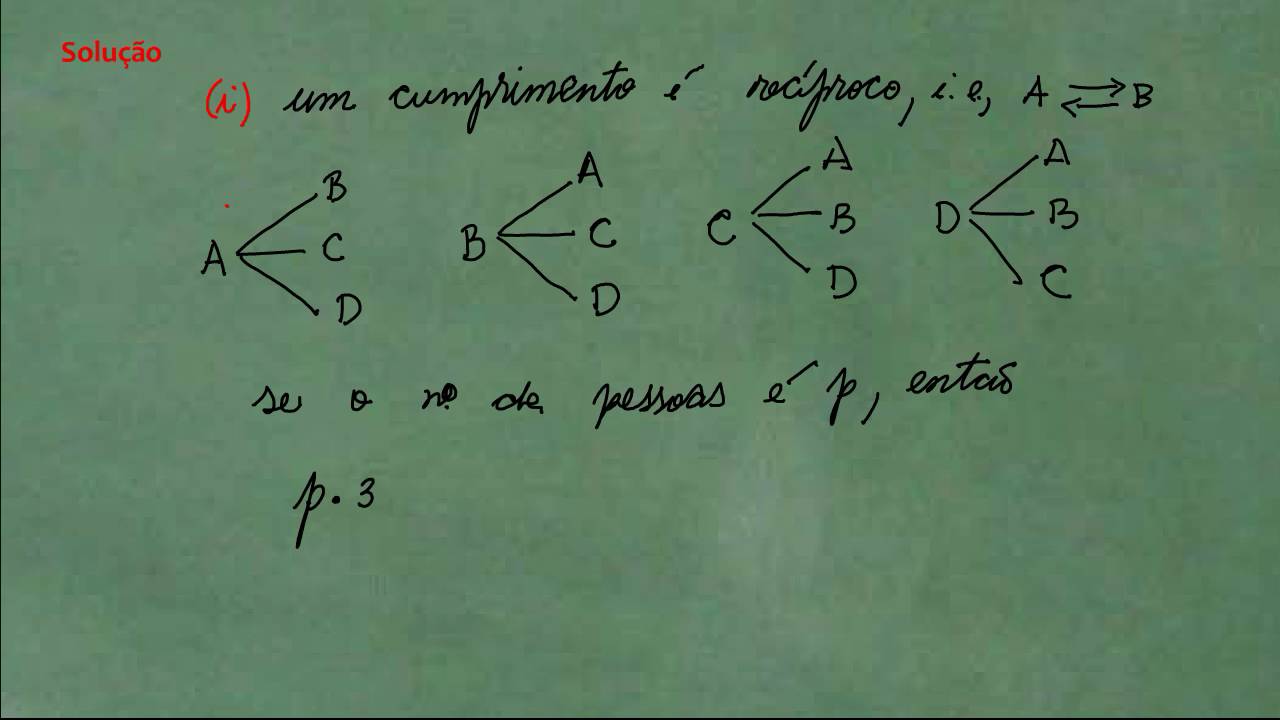 Solução
(i) um cumprimento é recíproco, i.e, A ⇄ B
A B C D
B A C D
C A B D
D A B C
se o nº de pessoas é p, então
p . 3